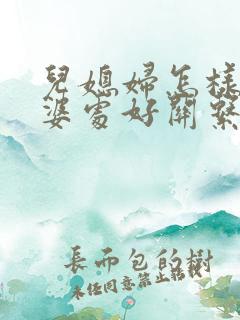 兒媳婦怎樣
婆處好關繫
長而包的樹
未經同意禁止轉載